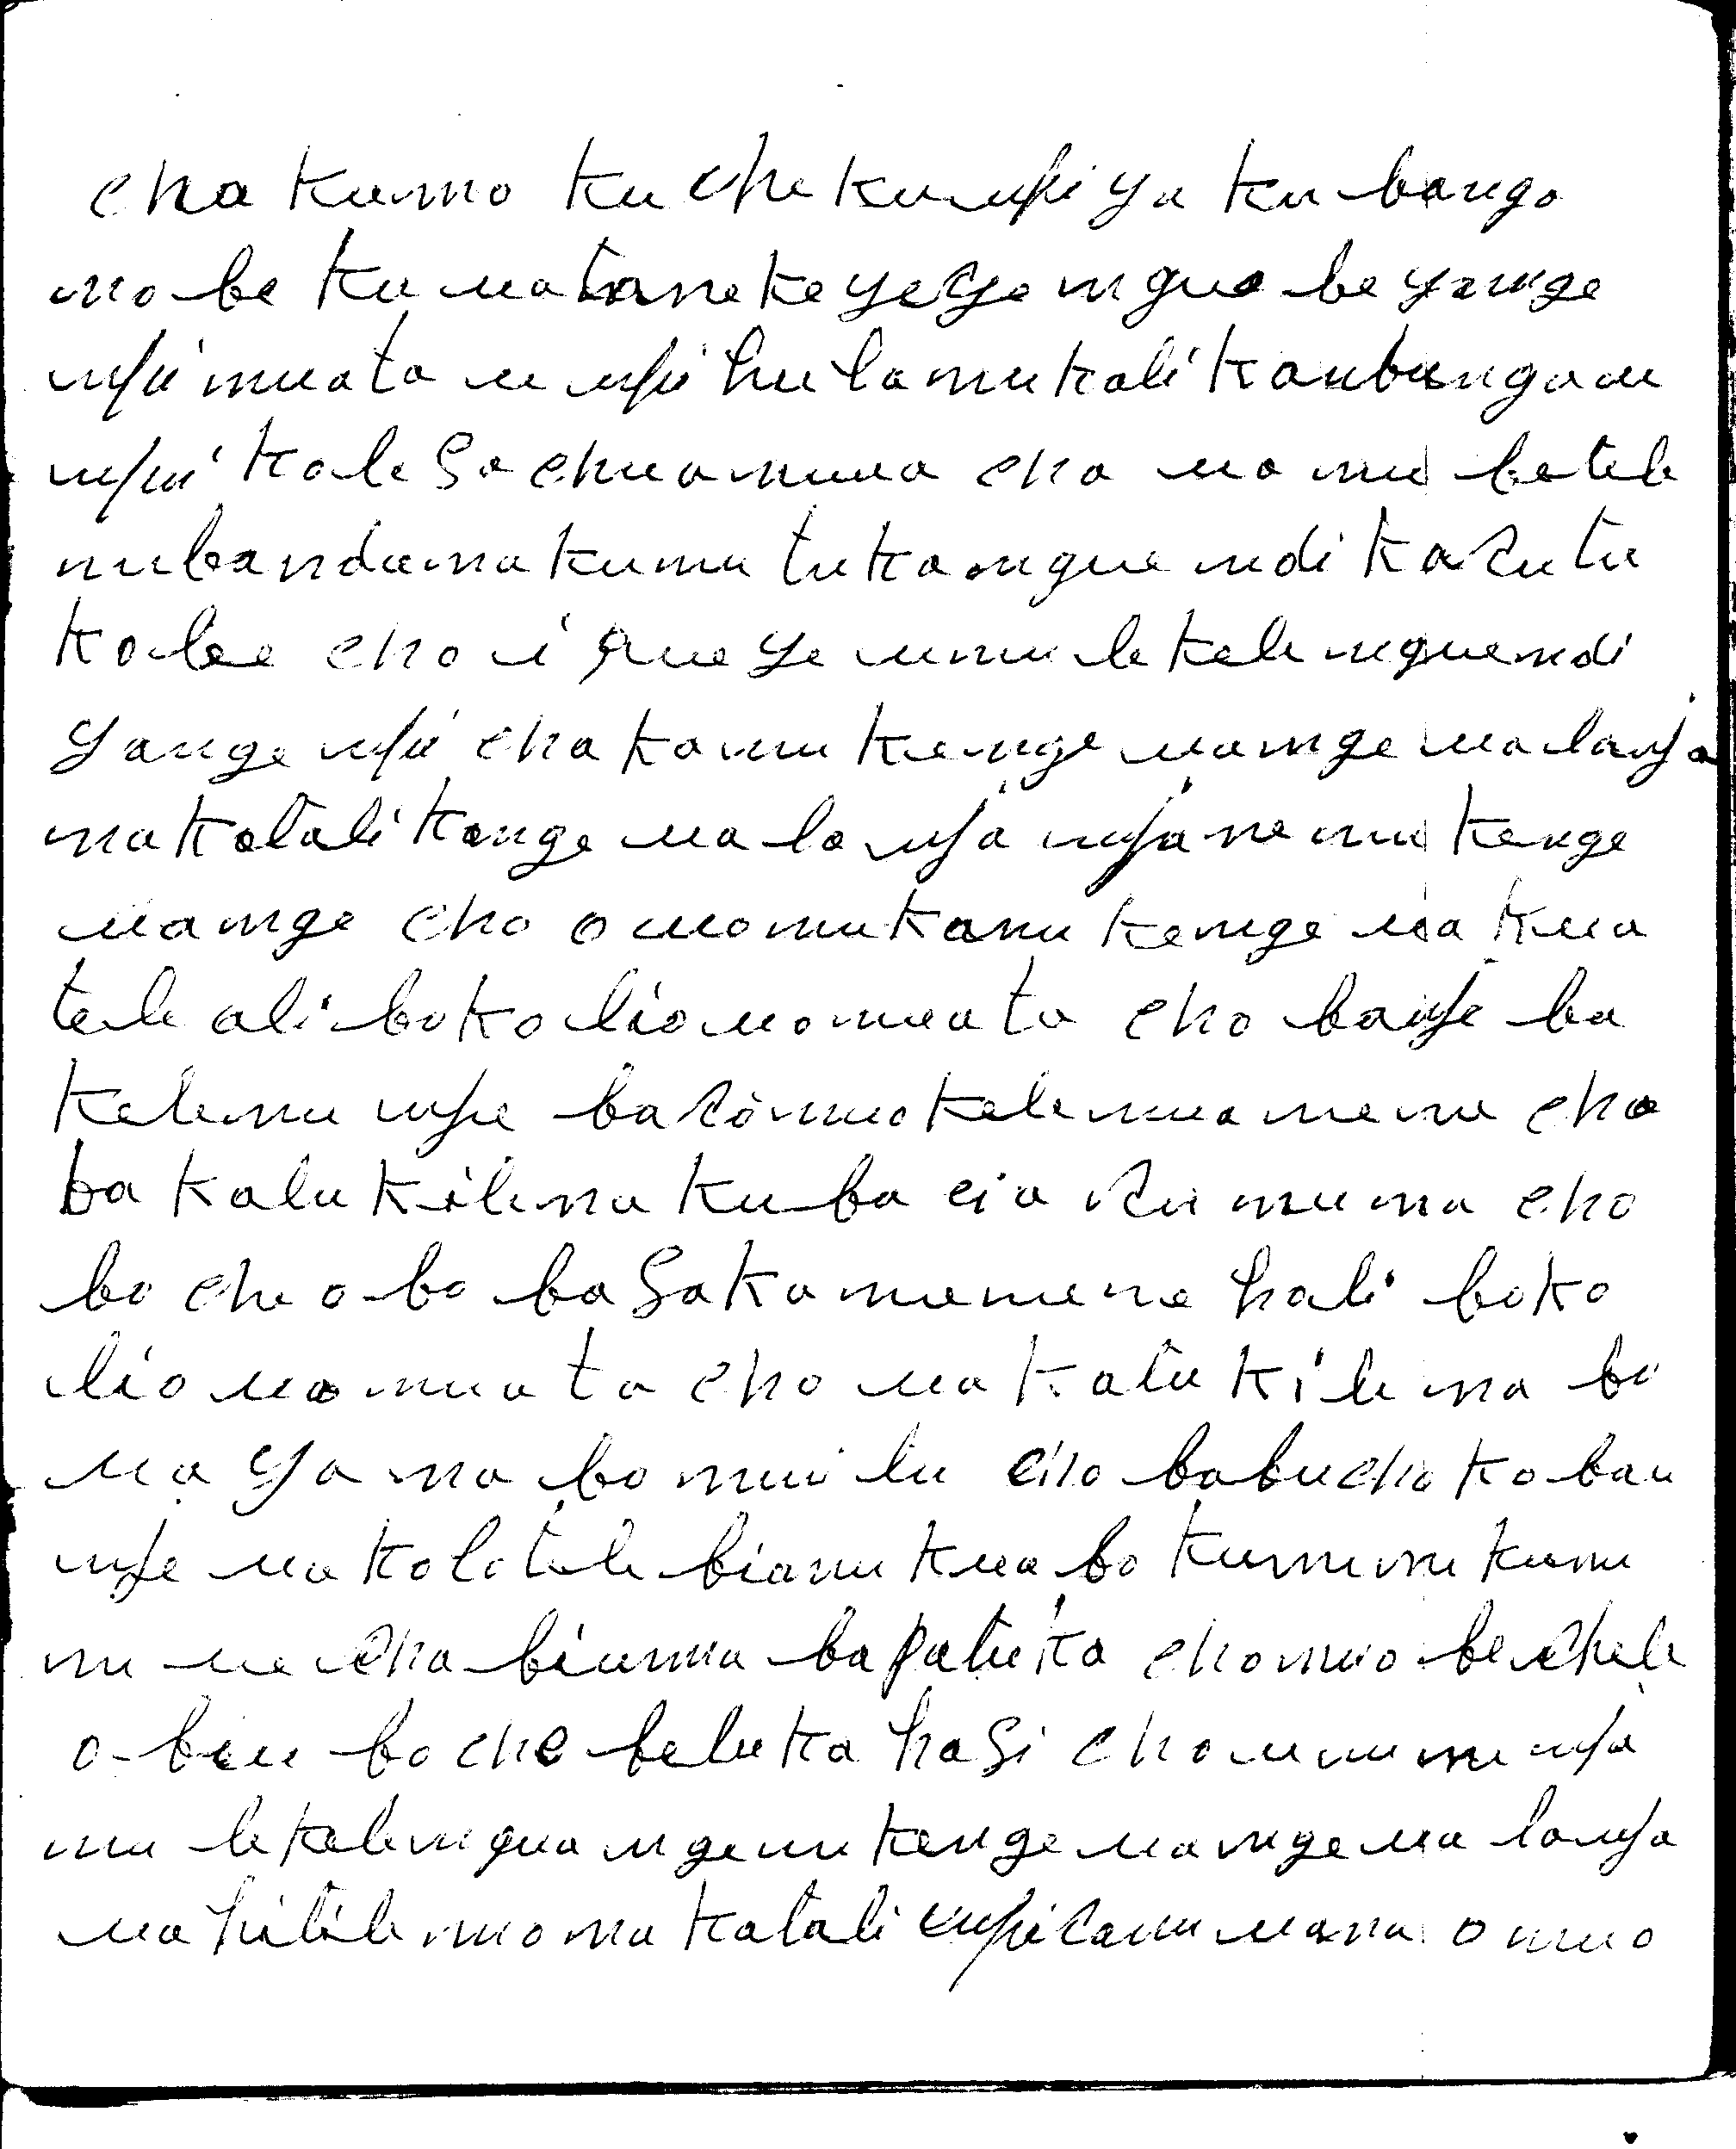 cha kumo ku che kunhi ya ku bango
mo be ku ua tane ke ye ye ngue be yange
nhi muata u nhi hu la mukali kanbungo u
nhi kale sa chua muua cha ua mu betele
mubanduma kumu tuka ngue ndi ka sutu
kalee cho i que ye umu lekele nguendi
yange nhi cha kamu kenge uamge ua lanja
na katali kange ua lanja nja ne mu kenge
uamge cho o uomu kamu kenge ua kua
tele ali boko lio uo muata cho banji ba
kelemu nhe ba so muo kele mua mene cho
ba kalukile na ku ba cia su muma cho
bo che o bo ba saka mumene hali boko
lio uo muata cho ua kalukile na bo
ua ya na bo muilu cho babu cho ko bau
nhe ua kalatele biamu kua bo kumu mukumu
mu ue cha biuma ba patuka cho muo be chele
o beu bo che beluka hasi cho umumu nja
mu lekele ngua nge mu kenge uamge ua lanja
ua hitile mo na katali nhi samu uana o muo